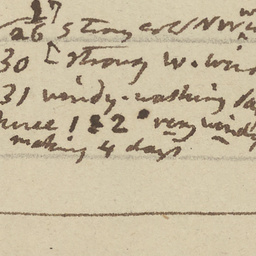 27
26 strong cold NW w
30 [ strong W. win
31 windy. washing da
June 1 & 2 very wind
making 4 days